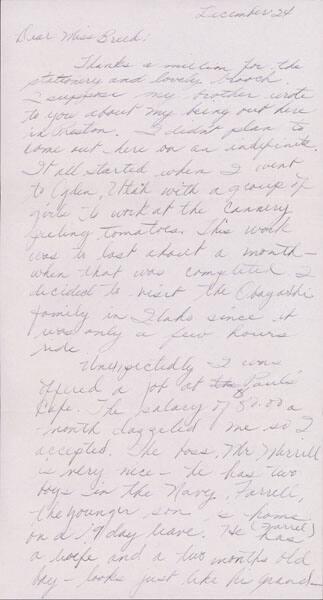 December 24
Dear Miss Breed:
Thanks a million for the
stationery and lovely brooch.
I suppose my brother wrote
to you about my being out here
in Preston. I didn't plan to
come out here on an indefinite.
It all started when I went
to Ogden, Utah with a group of
girls to work at the cannery
peeling tomatoes. This work
was to last about a month—
when that was completed I
decided to visit the
family in Idaho since it
was only a few hours
ride.
Unexpectedly I was
offered a job at Paul's
Cafe. The salary of $80.00 a
month dazzeled me so I
accepted. The boss, Mr Merrill
is very nice— he has two
boys in the Navy. Farrell,
the younger son is home
on a 19 day leave. He (Farrell) has
a wife and a two months old
boy— looks just like his grand-